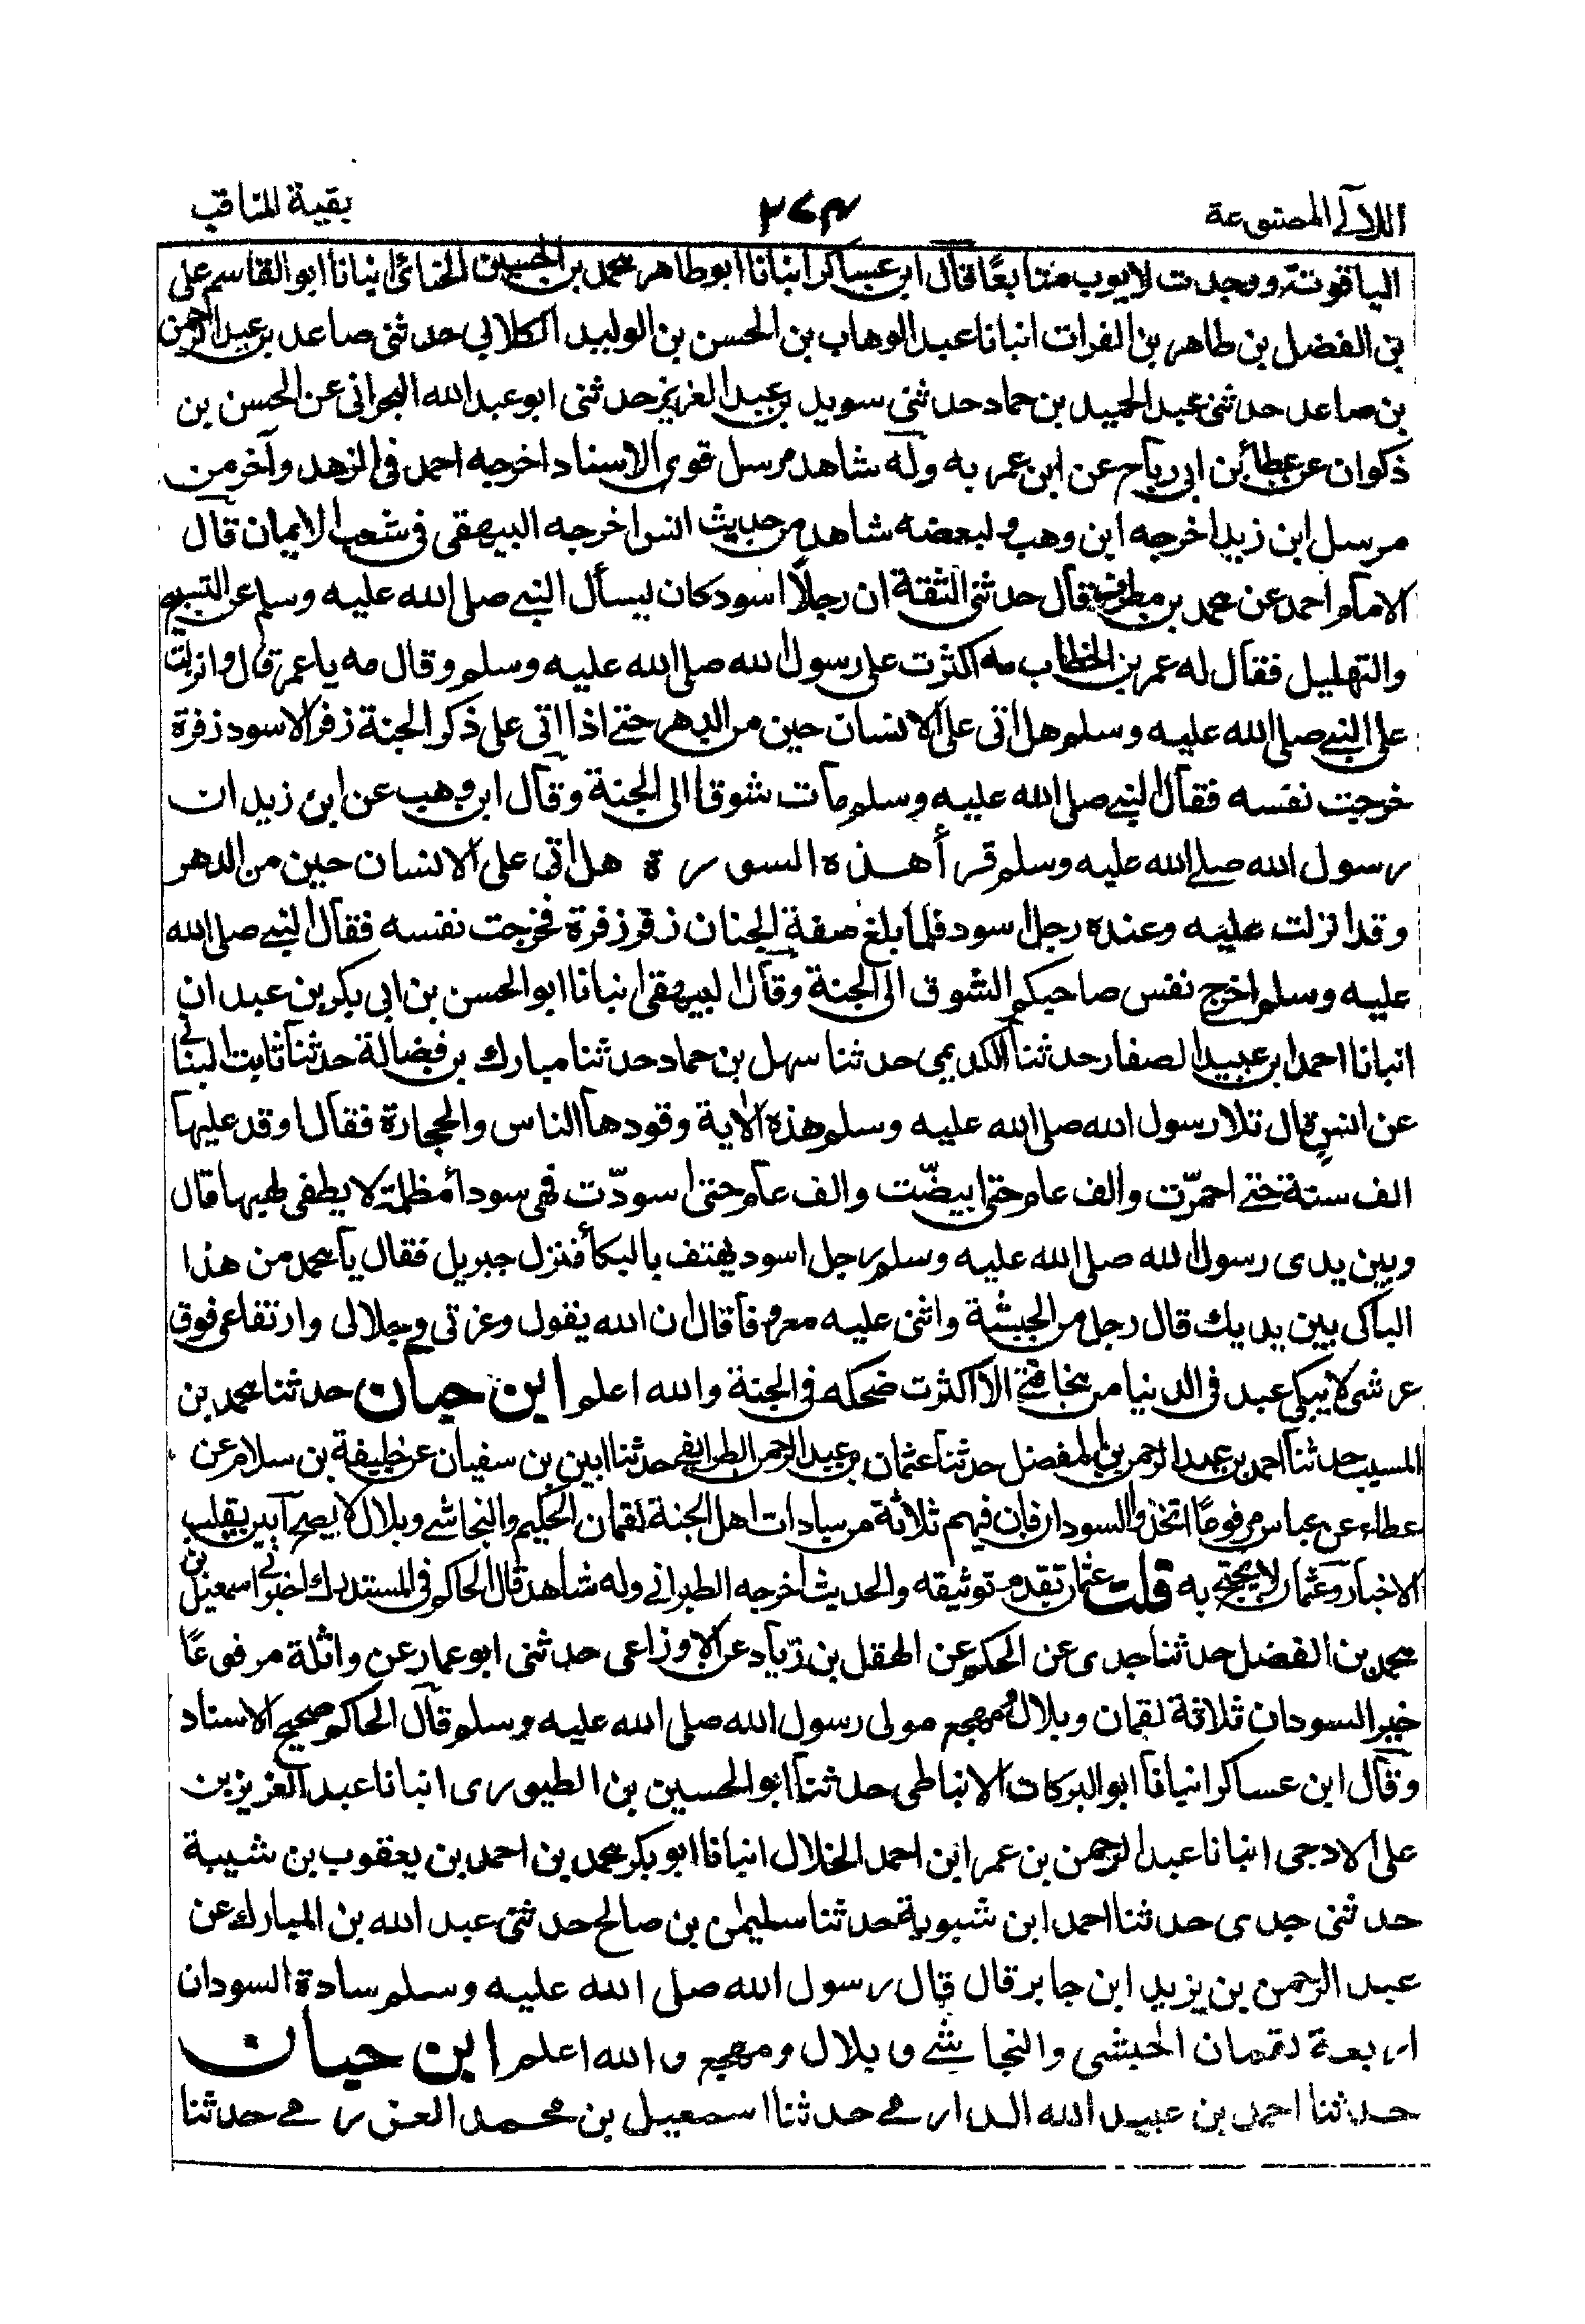 اللآلى المصنوعة ٢٧٣ بقية المناقب
الياقوتة ووجدت لايوب متابعًا قال ابن عساكر انبانا ابو طاهر محمد بن الحسين الحنائى انبانا ابو القاسم على
بن الفضل بن طاهر بن الفرات انبانا عبد الوهاب بن الحسن بن الوليد الكلابي حدثنى صاعد بن عبد الرحمن
بن صاعد حدثنى عبد الحميد بن حماد حدثني سويد بن عبد العزيز حدثنى ابو عبد الله البحرانى عن الحسن بن
ذكوان عن عطاء بن ابي رباح عن ابن عمر به وله شاهد مرسل قوى الاسناد اخرجه احمد فى الزهد وآخر من
مرسل ابن زيد اخرجه ابن وهب ولبعضه شاهد من حديث انس اخرجه البيهقى فى شعب الايمان قال
الامام احمد عن محمد بن مطرف قال حدثنى الثقة ان رجلًا اسود كان يسأل النبي صلى الله عليه وسلم عن التسبيح
والتهليل فقال له عمر بن الخطاب مه اكثرت على رسول الله صلى الله عليه وسلم وقال مه يا عمر قال وانزلت
على النبي صلى الله عليه وسلم هل اتى على الانسان حين من الدهر حتى اذا اتى على ذكر الجنة زفر الاسود زفرة
خرجت نفسه فقال النبي صلى الله عليه وسلم مات شوقا الى الجنة وقال ابن وهب عن ابن زيد ان
رسول الله صلى الله عليه وسلم قرأ هذه السورة هل اتى على الانسان حين من الدهر
وقد انزلت عليه وعنده رجل اسود فلما بلغ صفة الجنان زفر زفرة فخرجت نفسه فقال النبي صلى الله
عليه وسلم اخرج نفس صاحبكم الشوق الى الجنة وقال البيهقى انبانا ابو الحسن بن ابي بكر بن عبدان
انبانا احمد ابن عبيد الصفار حدثنا الكديمي حدثنا سهل بن حماد حدثنا مبارك بن فضالة حدثنا ثابت البناني
عن انس قال تلا رسول الله صلى الله عليه وسلم هذه الاية وقودها الناس والحجارة فقال اوقد عليها
الف سنة حتى احمرّت والف عام حتى ابيضّت والف عام حتى اسودّت فهي سوداء مظلمة لا يطفى لهيبها قال
وبين يدى رسول الله صلى الله عليه وسلم رجل اسود يهتف بالبكاء فنزل جبريل فقال يا محمد من هذا
الباكى بين يديك قال رجل من الحبشة واثنى عليه معروفا قال ان الله يقول وعزتي وجلالى وارتفاعى فوق
عرشى لا يبكى عبد فى الدنيا من مخافتى الا اكثرت ضحكه فى الجنة والله اعلم ابن حبان حدثنا محمد بن
المسيب حدثنا احمد بن عبد الرحمن بن المفضل حدثنا عثمان بن عبد الرحمن الطرايفى حدثنا ابين بن سفيان عن خليفة بن سلام عن
عطاء عن عباس مرفوعًا اتخذوا السودان فان فيهم ثلاثة من سادات اهل الجنة لقمان الحكيم والنجاشى وبلال لا يصح ابين يقلب
الاخبار وعثمان لا يحتج به قلت عثمان تقدم توثيقه والحديث اخرجه الطبرانى وله شاهد قال الحاكم فى المستدرك اخبرنى اسمعيل بن
محمد بن الفضل حدثنا جدى عن الحكم عن الهقل بن زياد عن الاوزاعى حدثنى ابو عمار عن واثلة مرفوعًا
خير السودان ثلاثة لقمان وبلال ومهجع مولى رسول الله صلى الله عليه وسلم قال الحاكم صحيح الاسناد
وقال ابن عساكر انبانا ابو البركات الانباطى حدثنا ابو الحسين بن الطيورى انبانا عبد العزيز بن
على الادجى انبانا عبد الرحمن بن عمر ابن احمد الخلال انبانا ابو بكر محمد بن احمد بن يعقوب بن شيبة
حدثنى جدى حدثنا احمد ابن شبوية حدثنا سليمن بن صالح حدثنى عبد الله بن المبارك عن
عبد الرحمن بن يزيد ابن جابر قال قال رسول الله صلى الله عليه وسلم سادة السودان
اربعة لقمان الحبشى والنجاشى وبلال ومهجع والله اعلم ابن حبان
حدثنا احمد بن عبيد الله الدارمي حدثنا اسمعيل بن محمد العزرمي حدثنا